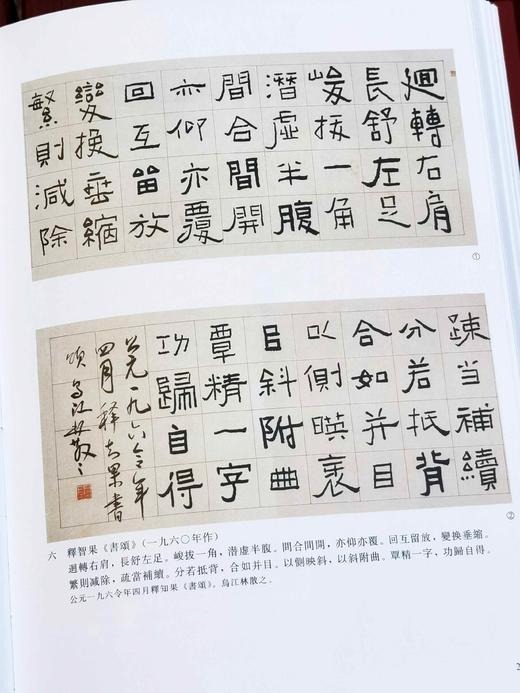 迴轉右肩
長舒左足
峻拔一角
潛虛半腹
間合間開
亦仰亦覆
回互留放
變換垂縮
繁則減除
①
疎當補續
分若抵背
合如并目
以側暎衺
㠯斜附曲
覃精一字
功歸自得
公元一九六令年
四月釋知果書
頌烏江林散之
②
六 釋智果《書頌》（一九六〇年作）
迴轉右肩，長舒左足。峻拔一角，潜虛半腹。間合間開，亦仰亦覆。回互留放，變換垂縮。
繁則减除，疏當補續。分若抵背，合如并目。以側映斜，以斜附曲。覃精一字，功歸自得。
公元一九六令年四月釋知果《書頌》。烏江林散之。